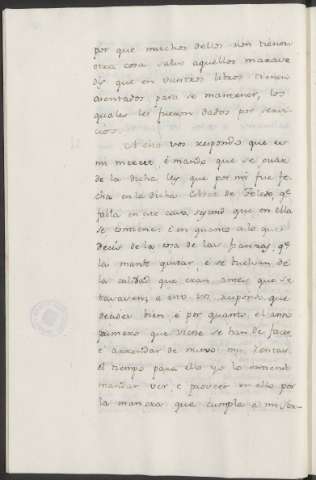 por que muchos dellos non tienen
otra cosa salvo aquellos marave
dis que en vuestros libros tienen
asentados para se mantener, los
quales les fueron dados por servi
cios.
A esto vos respondo que es
mi merced, é mando que se guarde
de la dicha ley que por mí fue fe
cha en la dicha Cibdad de Toledo, qe
falla en este caso segund que en ella
se contiene. E en quanto a lo que
decís de la cosa de las franezas qe
la mande quitar, e se vuelvan de
la calidad que eran antes que se
, a esto vos respondo que
decides bien, é por quanto el año
primero que viene se han de facer
é arrendar de nuevo mis rentas
el tiempo para ello yo lo entiendo
mandar ver, e proveer en ello por
la manera que cumpla a mi ser-